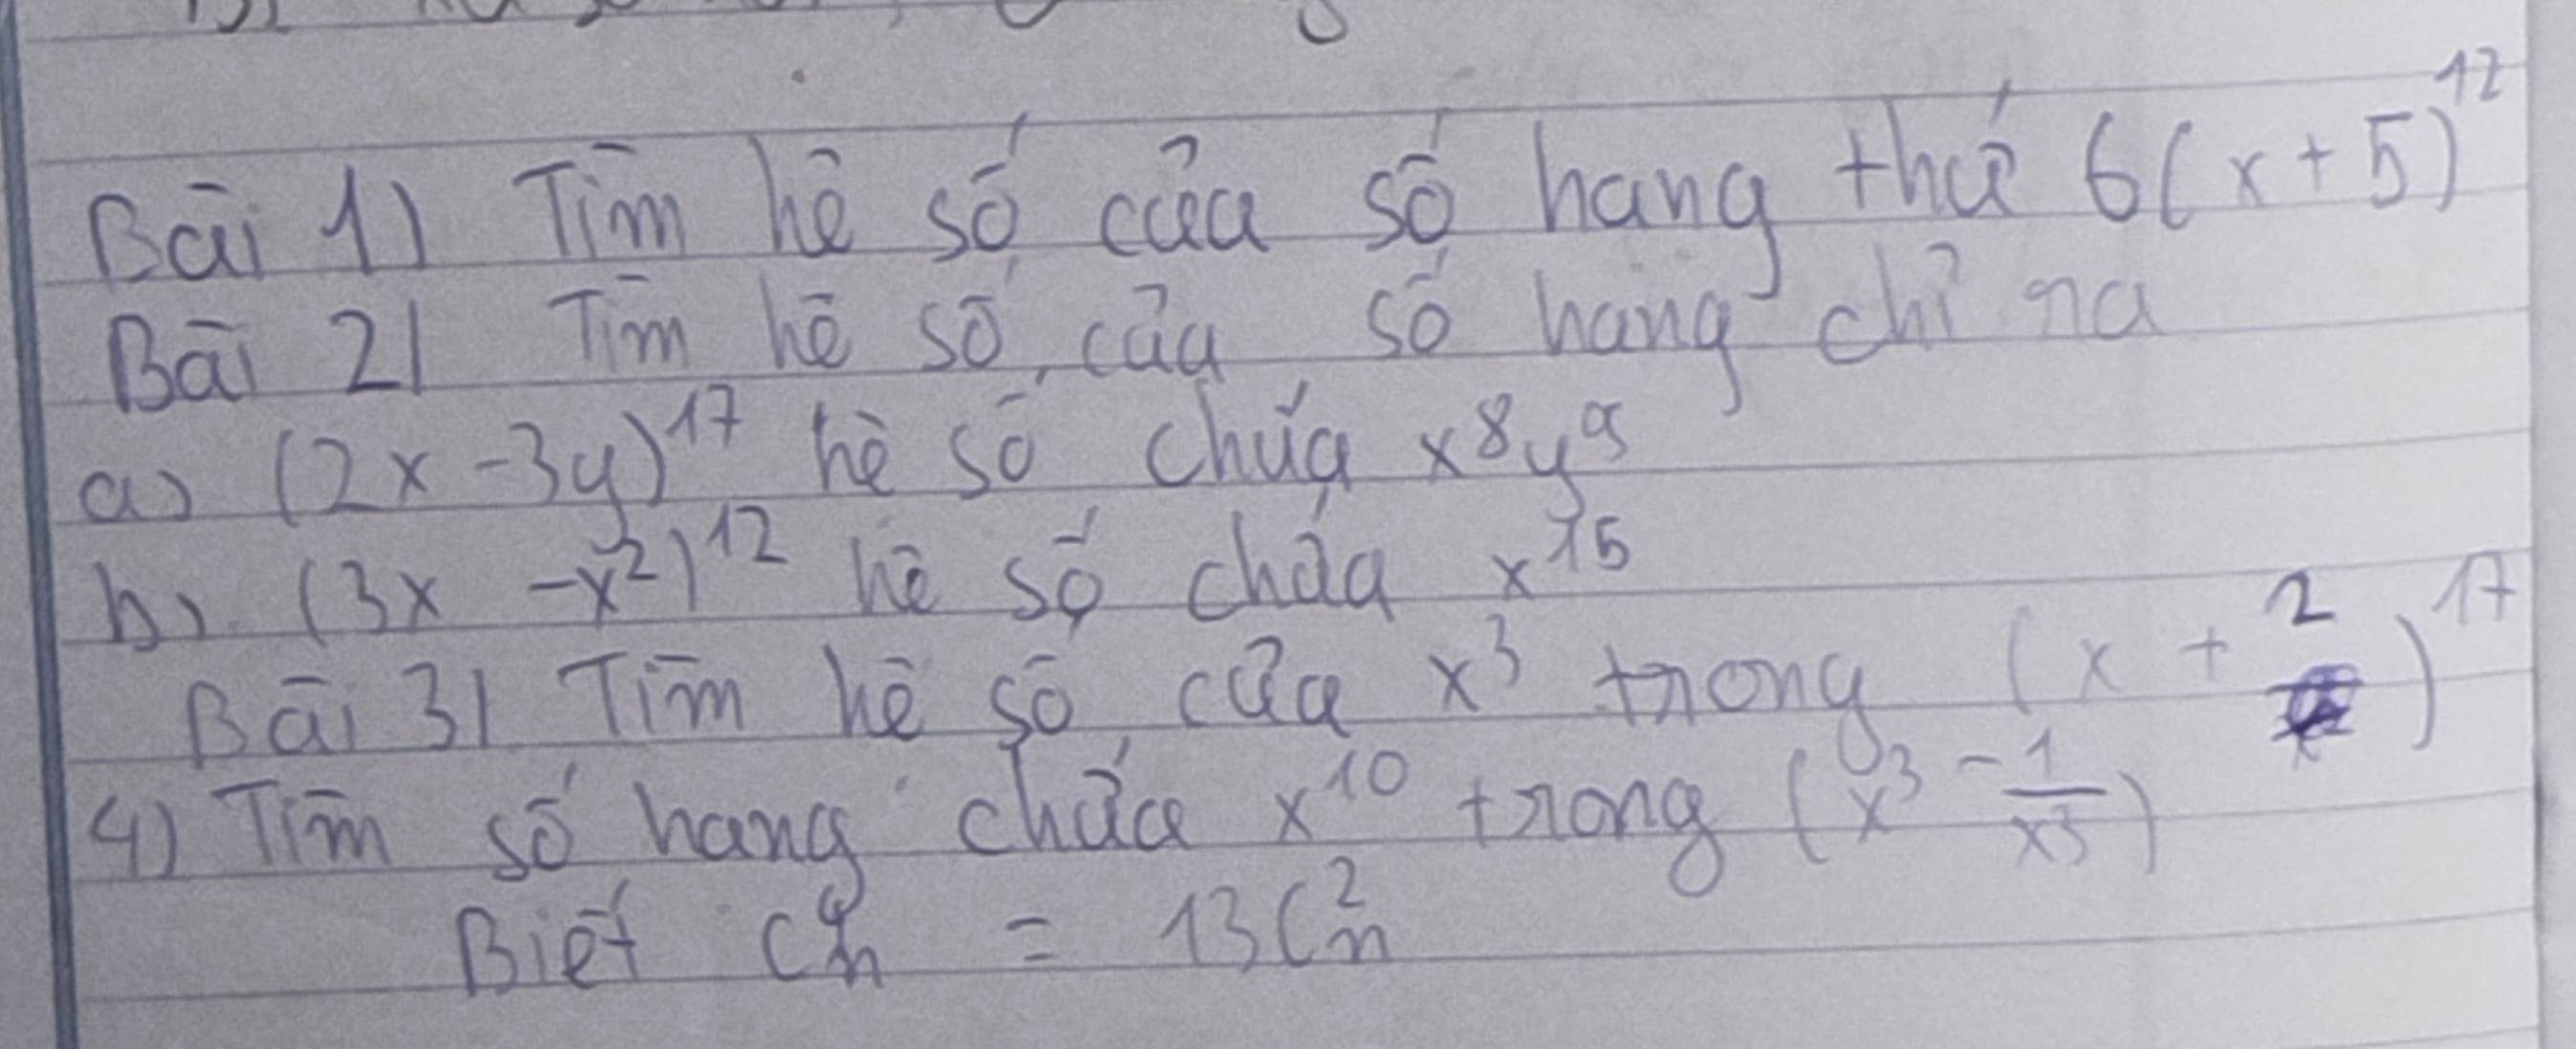 Bài 1) Tìm hệ số của số hang thứ 6(x+5)^12
Bài 2) Tìm hệ số của số hang chỉ ra
a) (2x-3y)^17 hệ số chứa x^8y^9
b) (3x -x^2)^12 hệ số chứa x^15
Bài 3) Tìm hệ số của x^3 trong (x + 2/ )^17
4) Tìm số hang chứa x^10 trong (x^3 - 1/x^3)
Biết C^4_n = 13C^2_n